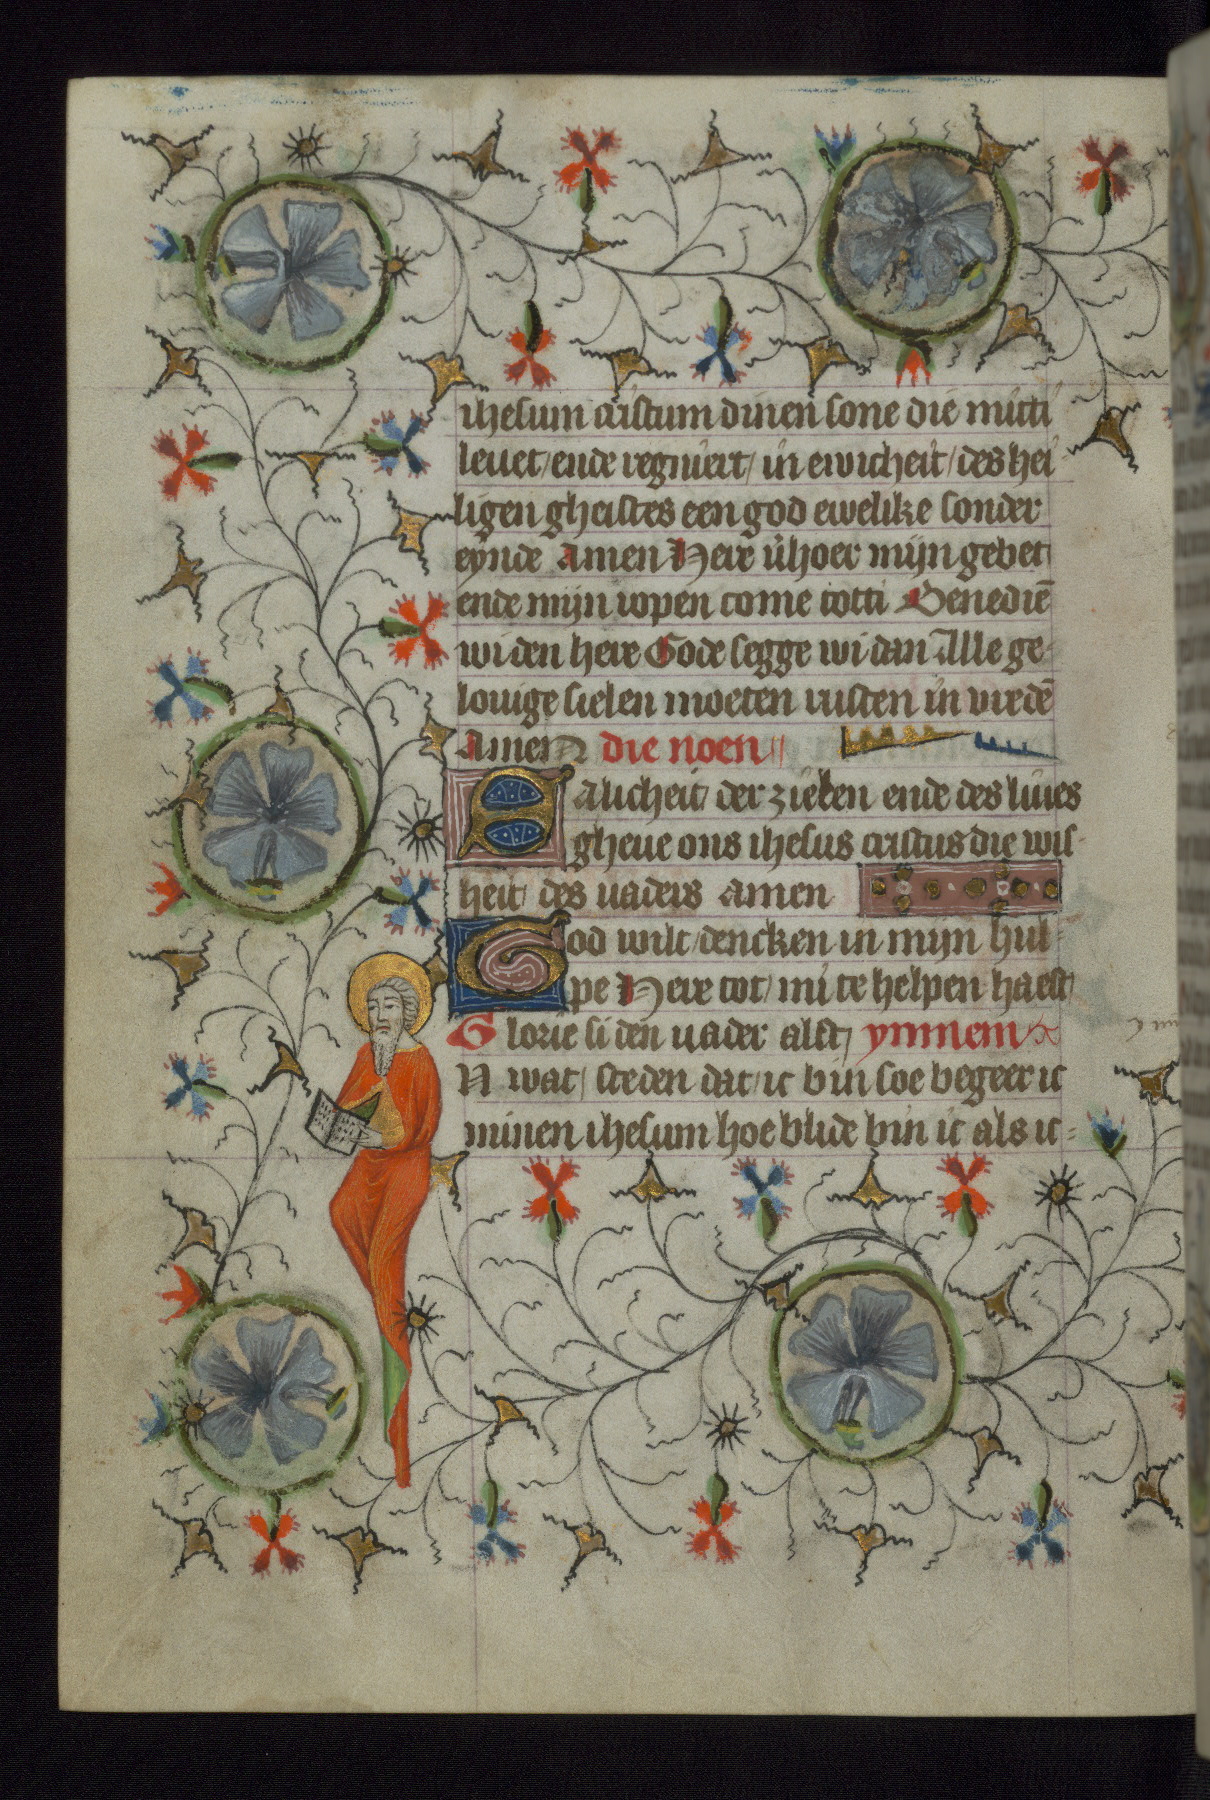 ihesum cristum dinen sone die mitti
leuet/ende regniert/in ewicheit/des hei
ligen gheistes een god ewelike sonder
eynde Amen Here v̾hoer mijn gebet
ende mijn ropen come totti Benediē
wi den here Gode segge wi danc Alle ge-
louige sielen moeten rusten in vredē
Amen die noen
Salicheit der zielen ende des liues
gheue ons ihesus cristus die wijs-
heit des uaders amen
God wilt dencken in mijn hul-
pe Here tot mi te helpen haest
Glorie si den uader alst ymnem
In wat steden dat ic bin soe begeer ic
minen ihesum hoe blide bin ic als ic-